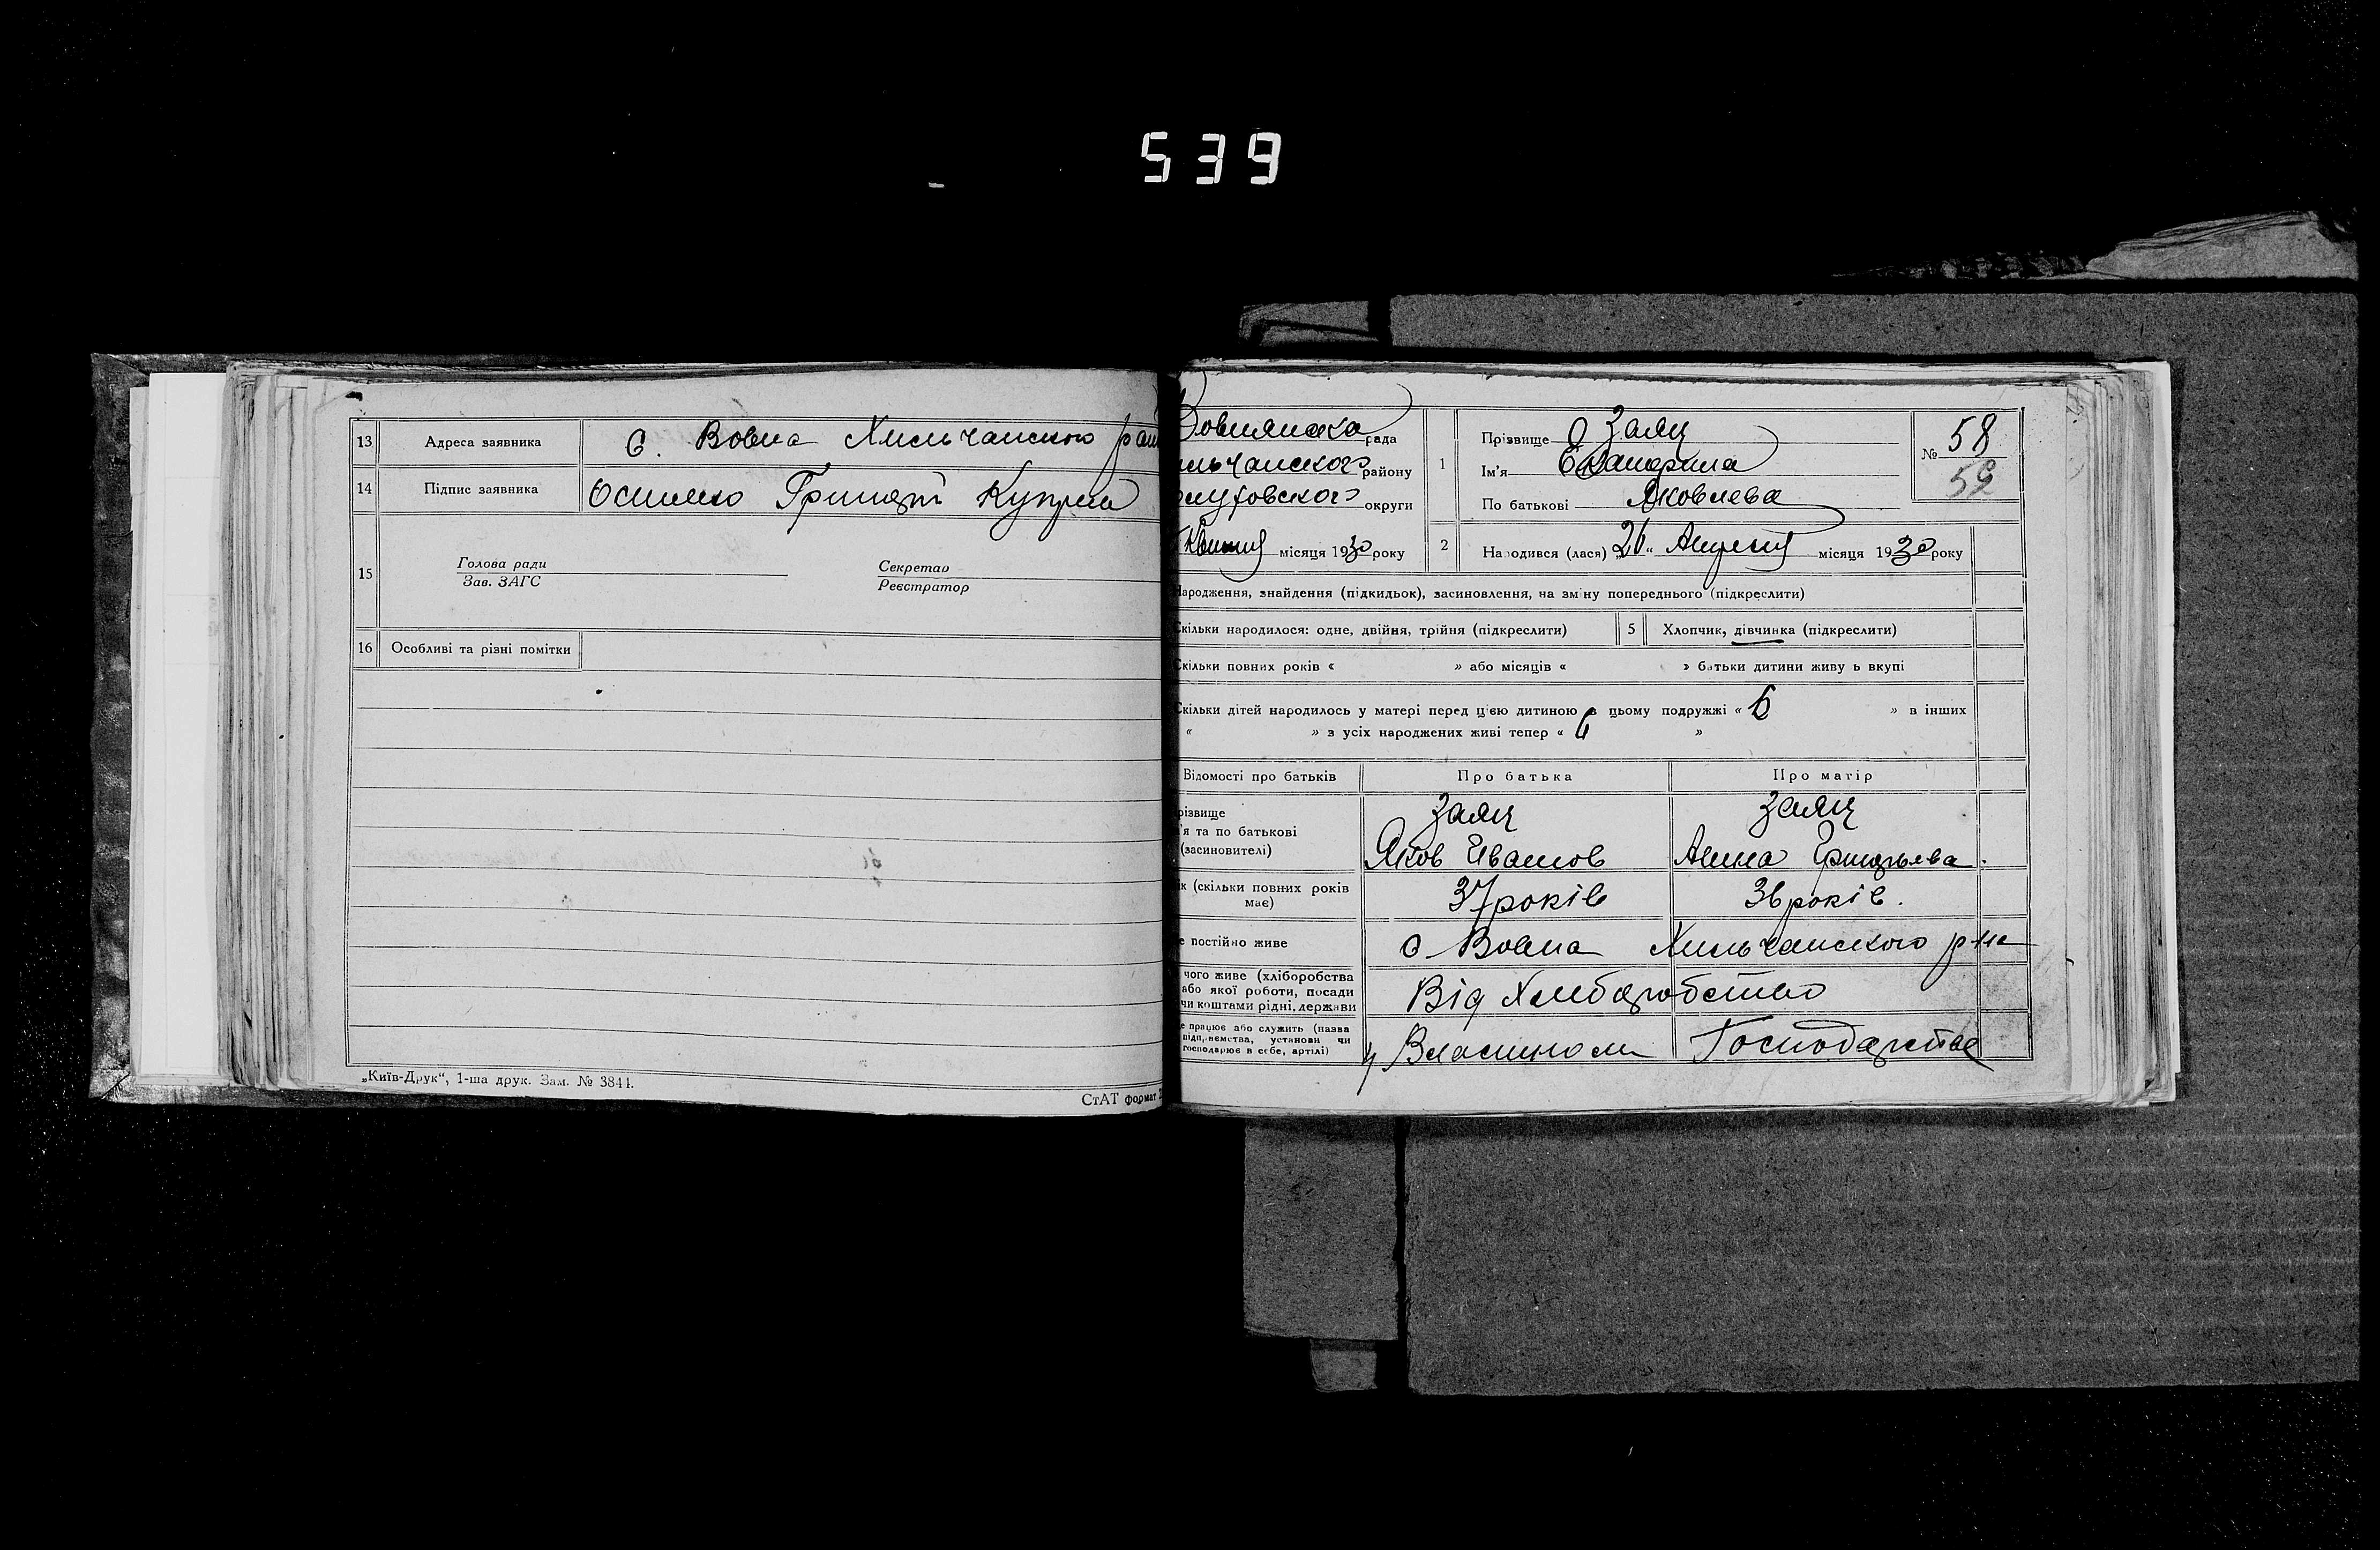 539
13 Адреса заявника с. Вовна Хильчанского рай
14 Підпис заявника
15 Голова ради Секретар
Зав. ЗАГС Реєстратор
16 Особливі та різні помітки
„Київ-Друк“, 1-ша друк. Зам. № 3844.
СтАТ формат
рада
ильчанского району
округи
місяця 1930 року
1 Прізвище Заяц
Ім'я Екатерина
По батькові Яковлева
№ 58
59
2 Народився (лася) „26“ Апреля місяця 1930 року
Народження, знайдення (підкидьок), засиновлення, на зміну попереднього (підкреслити)
Скільки народилося: одне, двійня, трійня (підкреслити) 5 Хлопчик, дівчинка (підкреслити)
Скільки повних років « » або місяців « » батьки дитини живу ь вкупі
Скільки дітей народилось у матері перед цією дитиною в цьому подружжі « 6 » в інших
« » з усіх народжених живі тепер « »
Відомості про батьків Про батька Про матір
різвище Заяц Заяц
'я та по батькові
(засиновителі) Яков Иванов Анна Григорьева.
ік (скільки повних років має) 37 років 36 років.
е постійно живе с Вовна Хильчанского р-на
чого живе (хліборобства
або якої роботи, посади Від Хлеборобство
чи коштами рідні, держави
е працює або служить (назва
підприємства, установи чи
господарює в себе, артілі) у Власном Господарстве